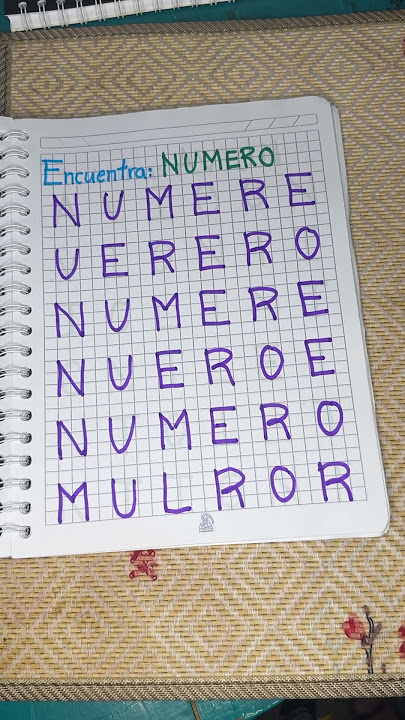 Encuentra: NUMERO
N U M E R E
U E R E R O
N U M E R E
N U E R O E
N U M E R O
M U L R O R